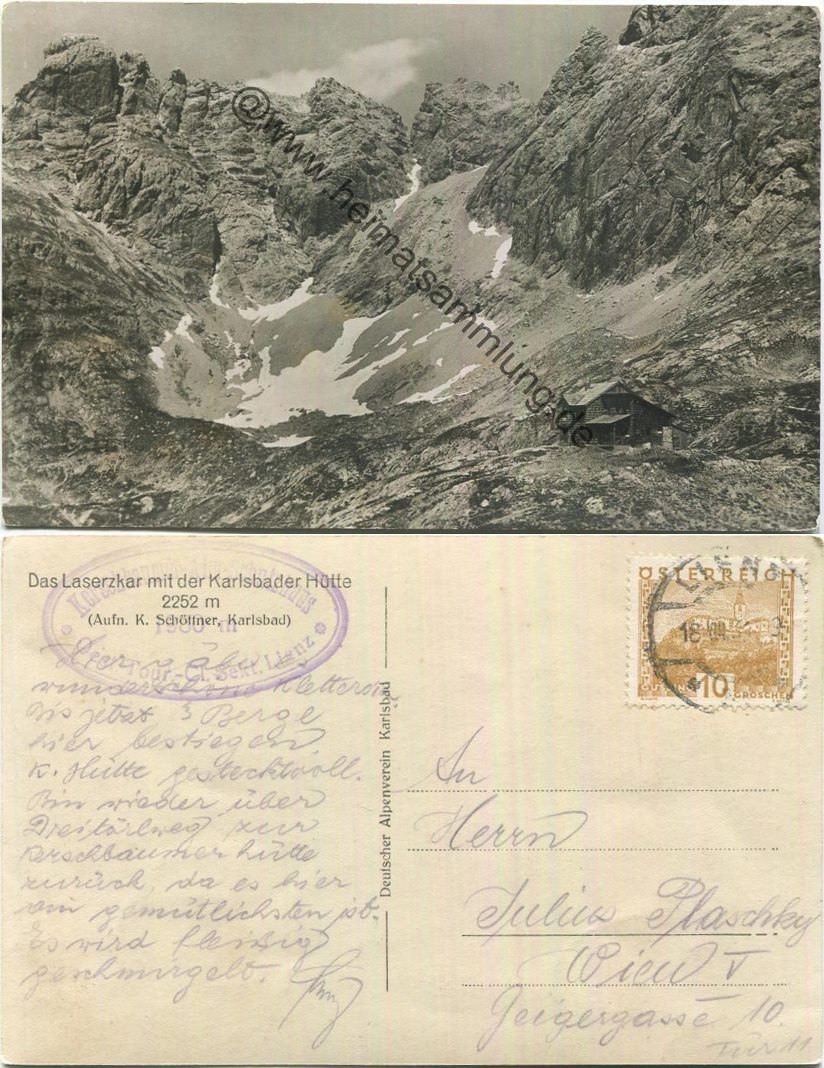 @www.heimatsammlung.de
Das Laserzkar mit der Karlsbader Hütte
2252 m
(Aufn. K. Schöttner, Karlsbad)
1980 m
Tour.-Cl. Sekt. Lienz
wunderschöne
bis jetzt 3 Berge
hier bestiegen
K. Hütte gesteckt voll.
Bin wieder über
Dreitörlweg zur
Kerschbaumerhütte
zurück, da es hier
am gemütlichsten ist.
Es wird fleißig
geschmirgelt.
Deutscher Alpenverein Karlsbad
ÖSTERREICH
LIENZ
18 VIII
10
GROSCHEN
An
Herrn
Julius Plaschky
Wien V
Geigergasse 10.
Tür 11